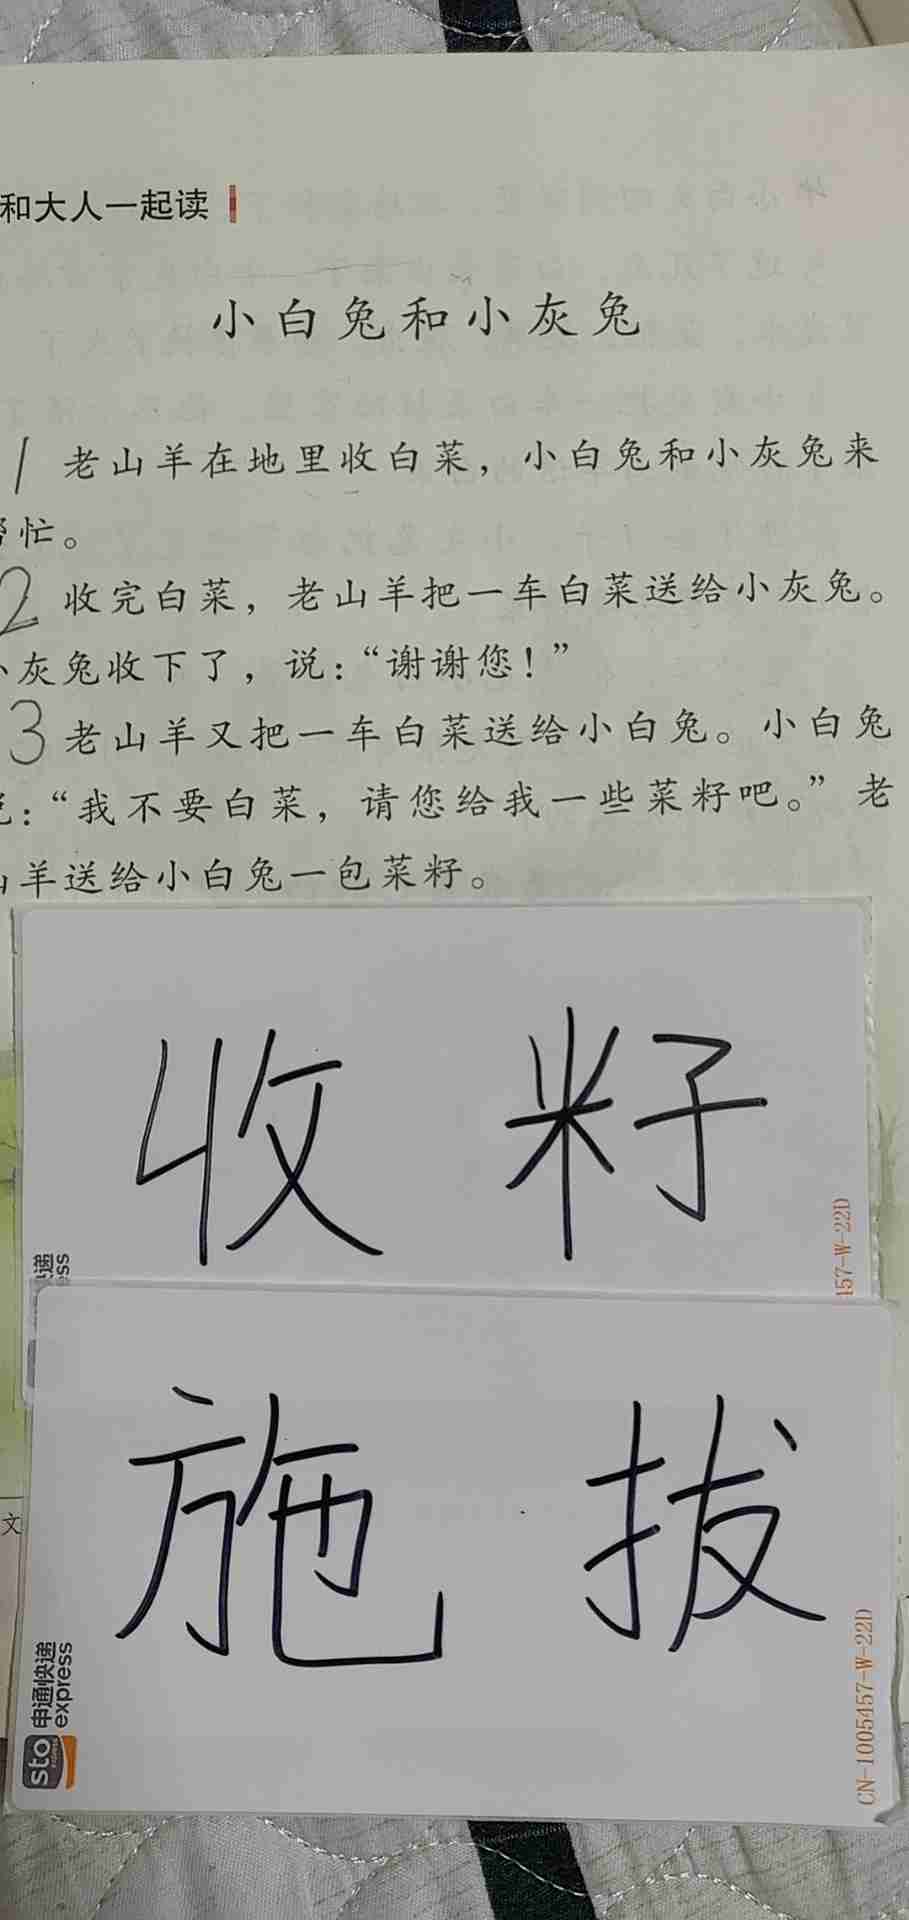 和大人一起读
小白兔和小灰兔
1 老山羊在地里收白菜，小白兔和小灰兔来
忙。
2 收完白菜，老山羊把一车白菜送给小灰兔。
灰兔收下了，说：“谢谢您！”
3 老山羊又把一车白菜送给小白兔。小白兔
：“我不要白菜，请您给我一些菜籽吧。”老
羊送给小白兔一包菜籽。
收 籽
157-W-22D
递
ess
施 拔
文
sto
express
申通快递
express
CN-1005457-W-22D